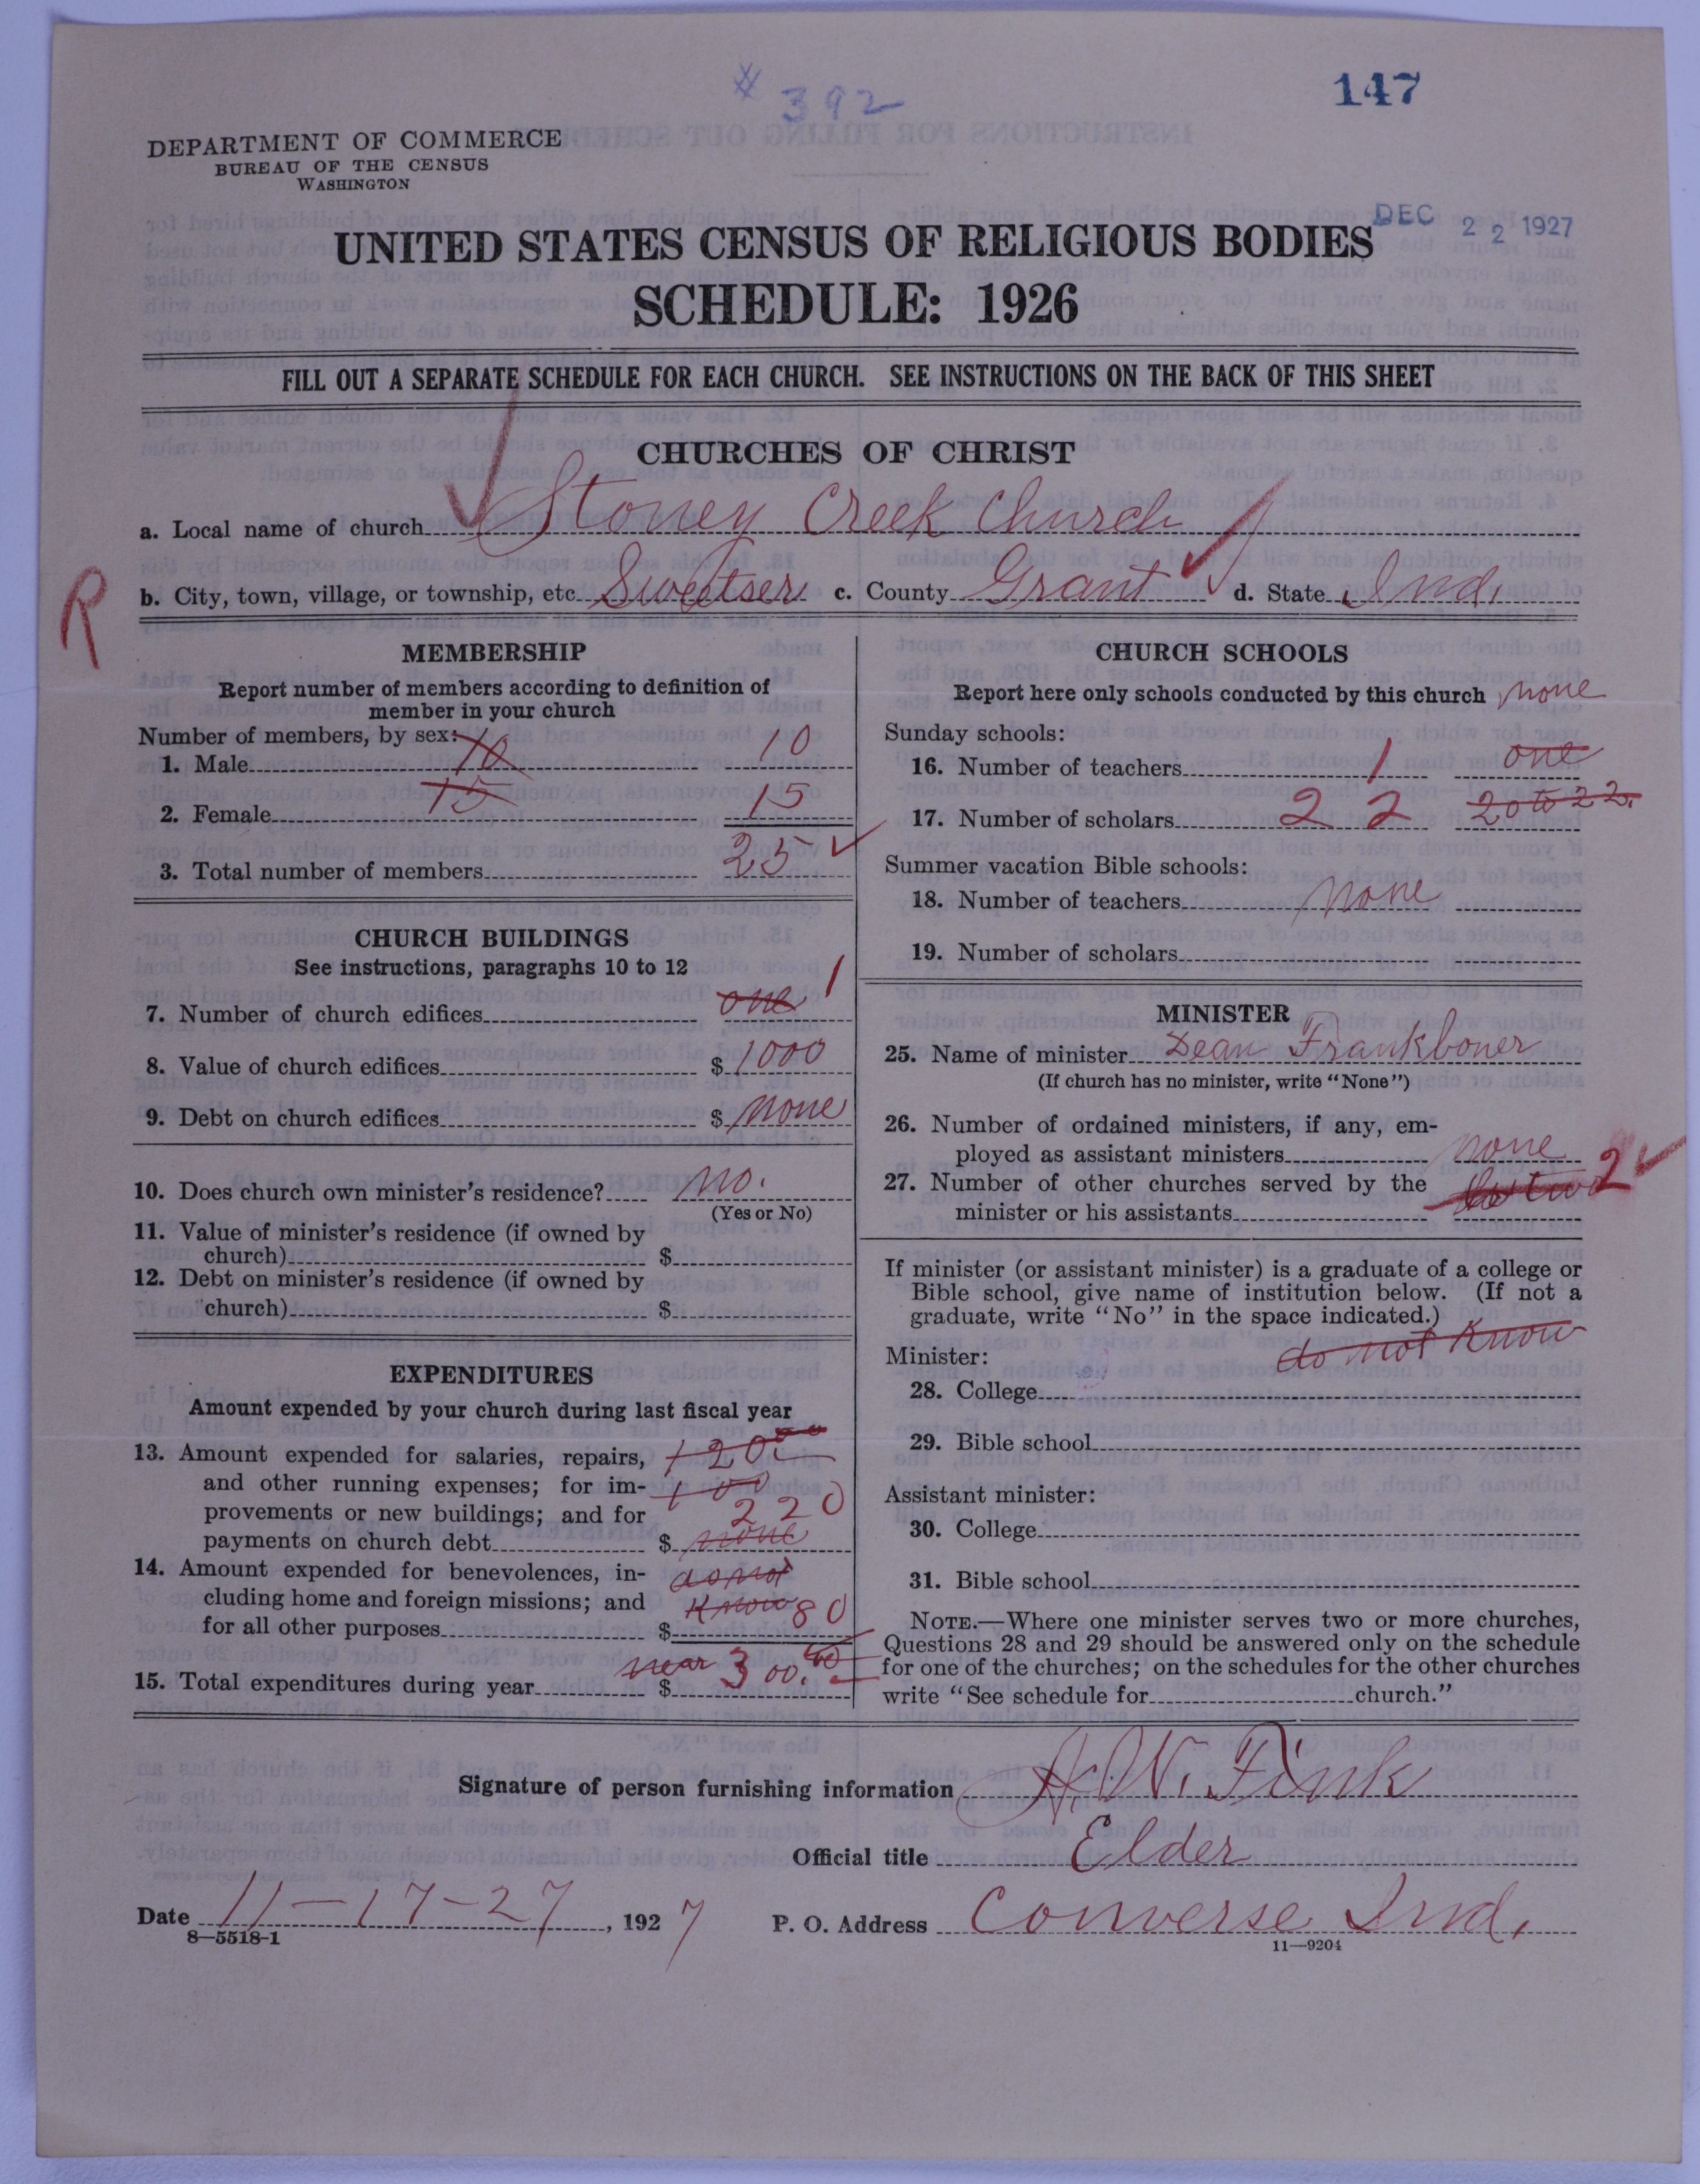 # 392
147
DEPARTMENT OF COMMERCE
BUREAU OF THE CENSUS
WASHINGTON
DEC 22 1927
UNITED STATES CENSUS OF RELIGIOUS BODIES
SCHEDULE: 1926
FILL OUT A SEPARATE SCHEDULE FOR EACH CHURCH. SEE INSTRUCTIONS ON THE BACK OF THIS SHEET
CHURCHES OF CHRIST
a. Local name of church Stoney Creek Church
R
b. City, town, village, or township, etc. Sweetser c. County Grant d. State Ind.
MEMBERSHIP
Report number of members according to definition of
member in your church
Number of members, by sex:
1. Male 10 10
2. Female 15 15
3. Total number of members 25
CHURCH BUILDINGS
See instructions, paragraphs 10 to 12
7. Number of church edifices one 1
8. Value of church edifices $ 1000
9. Debt on church edifices $ none
10. Does church own minister's residence? no.
(Yes or No)
11. Value of minister's residence (if owned by
church) $
12. Debt on minister's residence (if owned by
church) $
EXPENDITURES
Amount expended by your church during last fiscal year
13. Amount expended for salaries, repairs, 120
and other running expenses; for im- 100
provements or new buildings; and for 220
payments on church debt $ none
14. Amount expended for benevolences, in- do not
cluding home and foreign missions; and know 80
for all other purposes $
15. Total expenditures during year near $ 300.00
CHURCH SCHOOLS
Report here only schools conducted by this church none
Sunday schools:
16. Number of teachers 1 one
17. Number of scholars 22 20 to 22.
Summer vacation Bible schools:
18. Number of teachers none
19. Number of scholars
MINISTER
25. Name of minister Dean Frankboner
(If church has no minister, write "None")
26. Number of ordained ministers, if any, em-
ployed as assistant ministers none
27. Number of other churches served by the two 2
minister or his assistants
If minister (or assistant minister) is a graduate of a college or
Bible school, give name of institution below. (If not a
graduate, write "No" in the space indicated.)
do not know
Minister:
28. College
29. Bible school
Assistant minister:
30. College
31. Bible school
NOTE.—Where one minister serves two or more churches,
Questions 28 and 29 should be answered only on the schedule
for one of the churches; on the schedules for the other churches
write "See schedule for church."
Signature of person furnishing information A. W. Fink
Official title Elder
Date 11-17-27, 1927 P. O. Address Converse Ind.
8-5518-1
11-9204